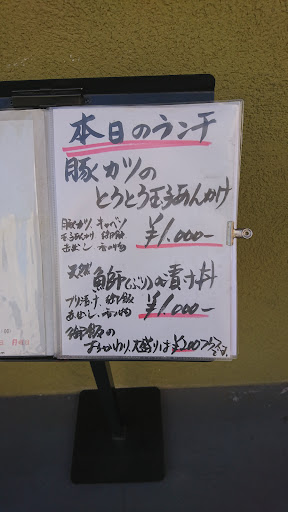 本日のランチ
豚カツの
とろとろ玉子あんかけ
豚カツ、キャベツ
玉子あんかけ 御飯
お出し 香の物
¥1.000-
天然 鰤(ぶり)の漬け丼
ブリ漬け、御飯
お出し、香の物
¥1.000-
御飯の
おかわり、大盛りは¥200プラス
です。